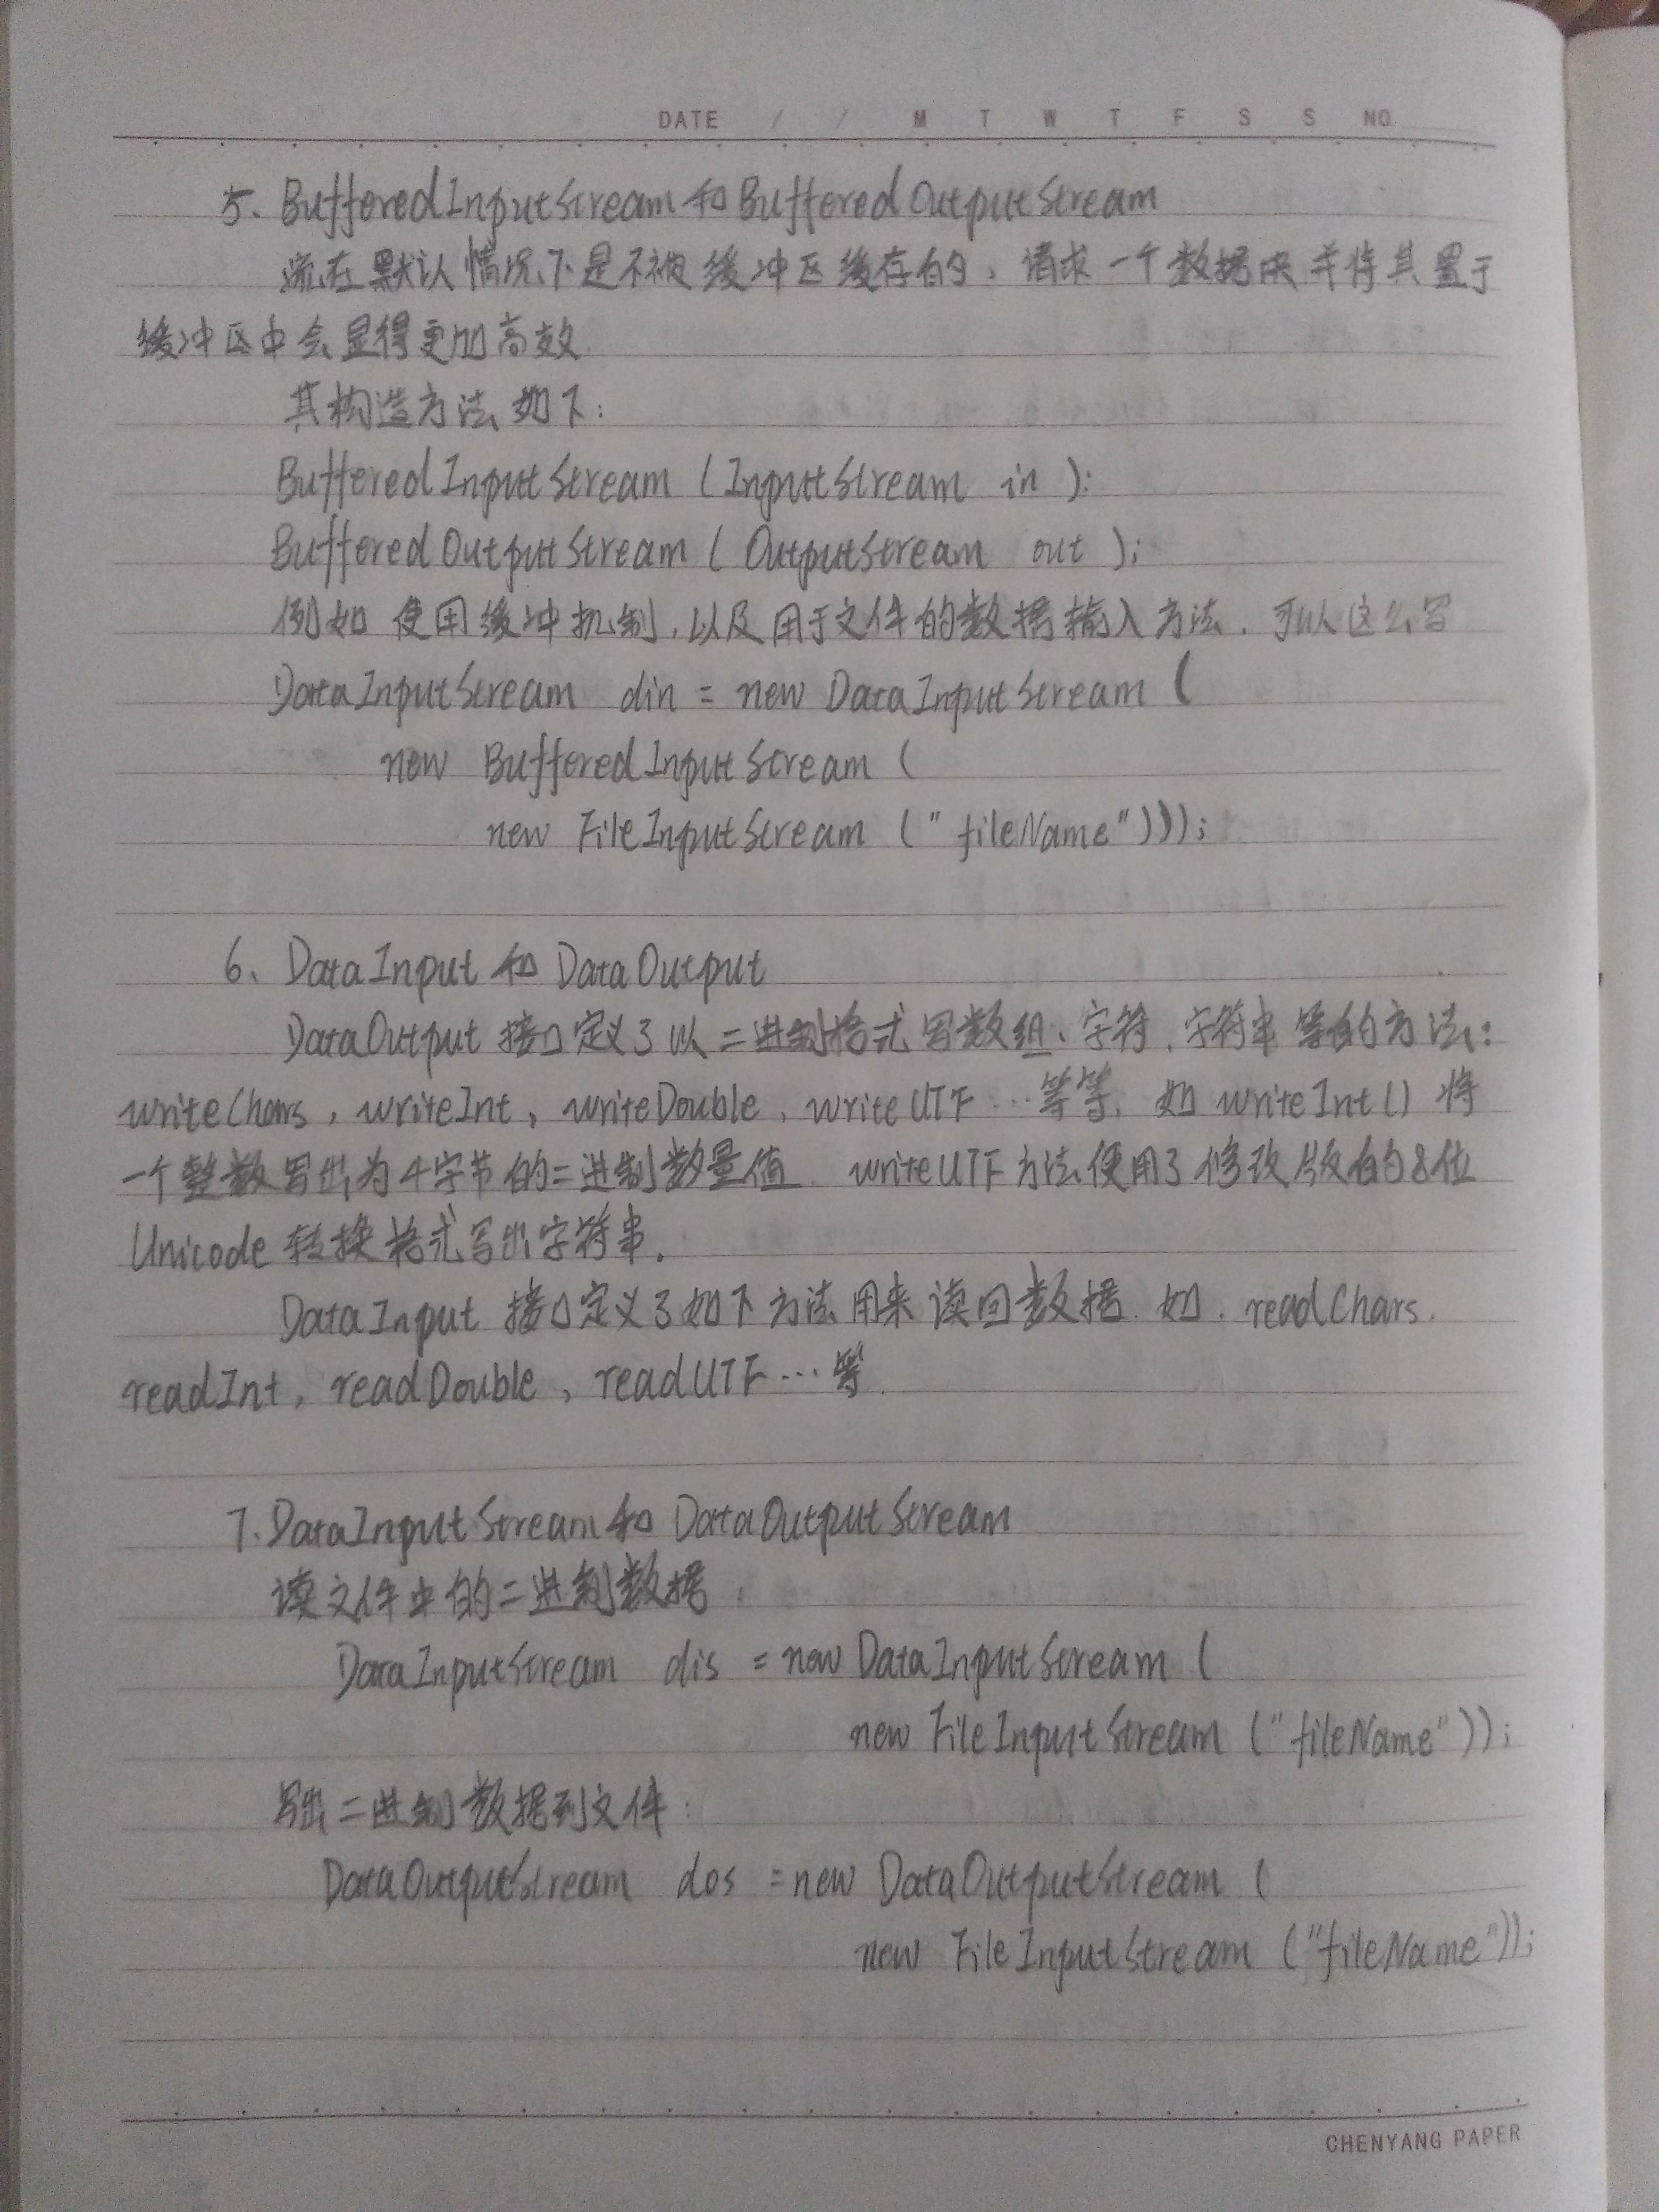 DATE / / M T W T F S S NO.
5、BufferedInputStream和BufferedOutputStream
流在默认情况下是不被缓冲区缓存的，请求一个数据块并将其置于
缓冲区中会显得更加高效.
其构造方法如下：
BufferedInputStream (InputStream in );
BufferedOutputStream ( OutputStream out );
例如 使用缓冲机制，以及用于文件的数据输入方法，可以这么写
DataInputStream din = new DataInputStream (
new BufferedInputStream (
new FileInputStream (" fileName")));
6、DataInput 和 DataOutput
DataOutput 接口定义了以二进制格式写数组、字符、字符串等的方法：
writeChars，writeInt，writeDouble，writeUTF…等等. 如 writeInt() 将
一个整数写出为4字节的二进制数量值. writeUTF方法使用了修改版的8位
Unicode 转换格式写出字符串.
DataInput 接口定义了如下方法用来读回数据. 如. readChars.
readInt，readDouble，readUTF…等.
7.DataInputStream和 DataOutputStream
读文件中的二进制数据：
DataInputStream dis = new DataInputStream (
new FileInputStream ("fileName"));
写出二进制数据到文件：
DataOutputStream dos = new DataOutputStream (
new FileInputStream ("fileName"));
CHENYANG PAPER